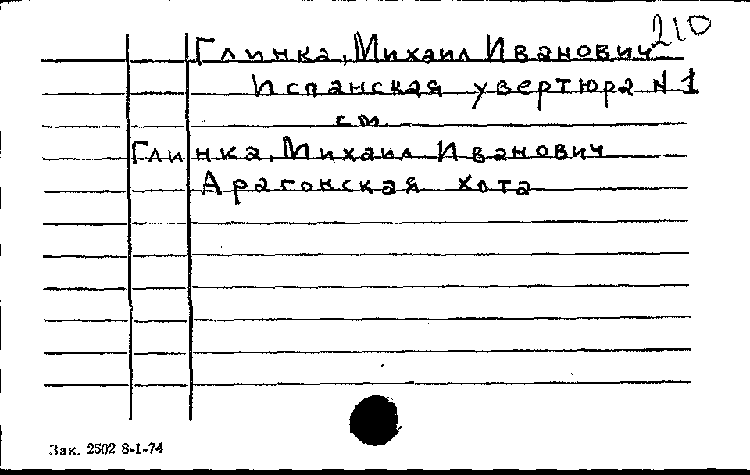 210
Глинка, Михаил Иванович
Испанская увертюра N 1
см.
Глинка, Михаил Иванович
Арагонская хота
Зак. 2502 8-1-74